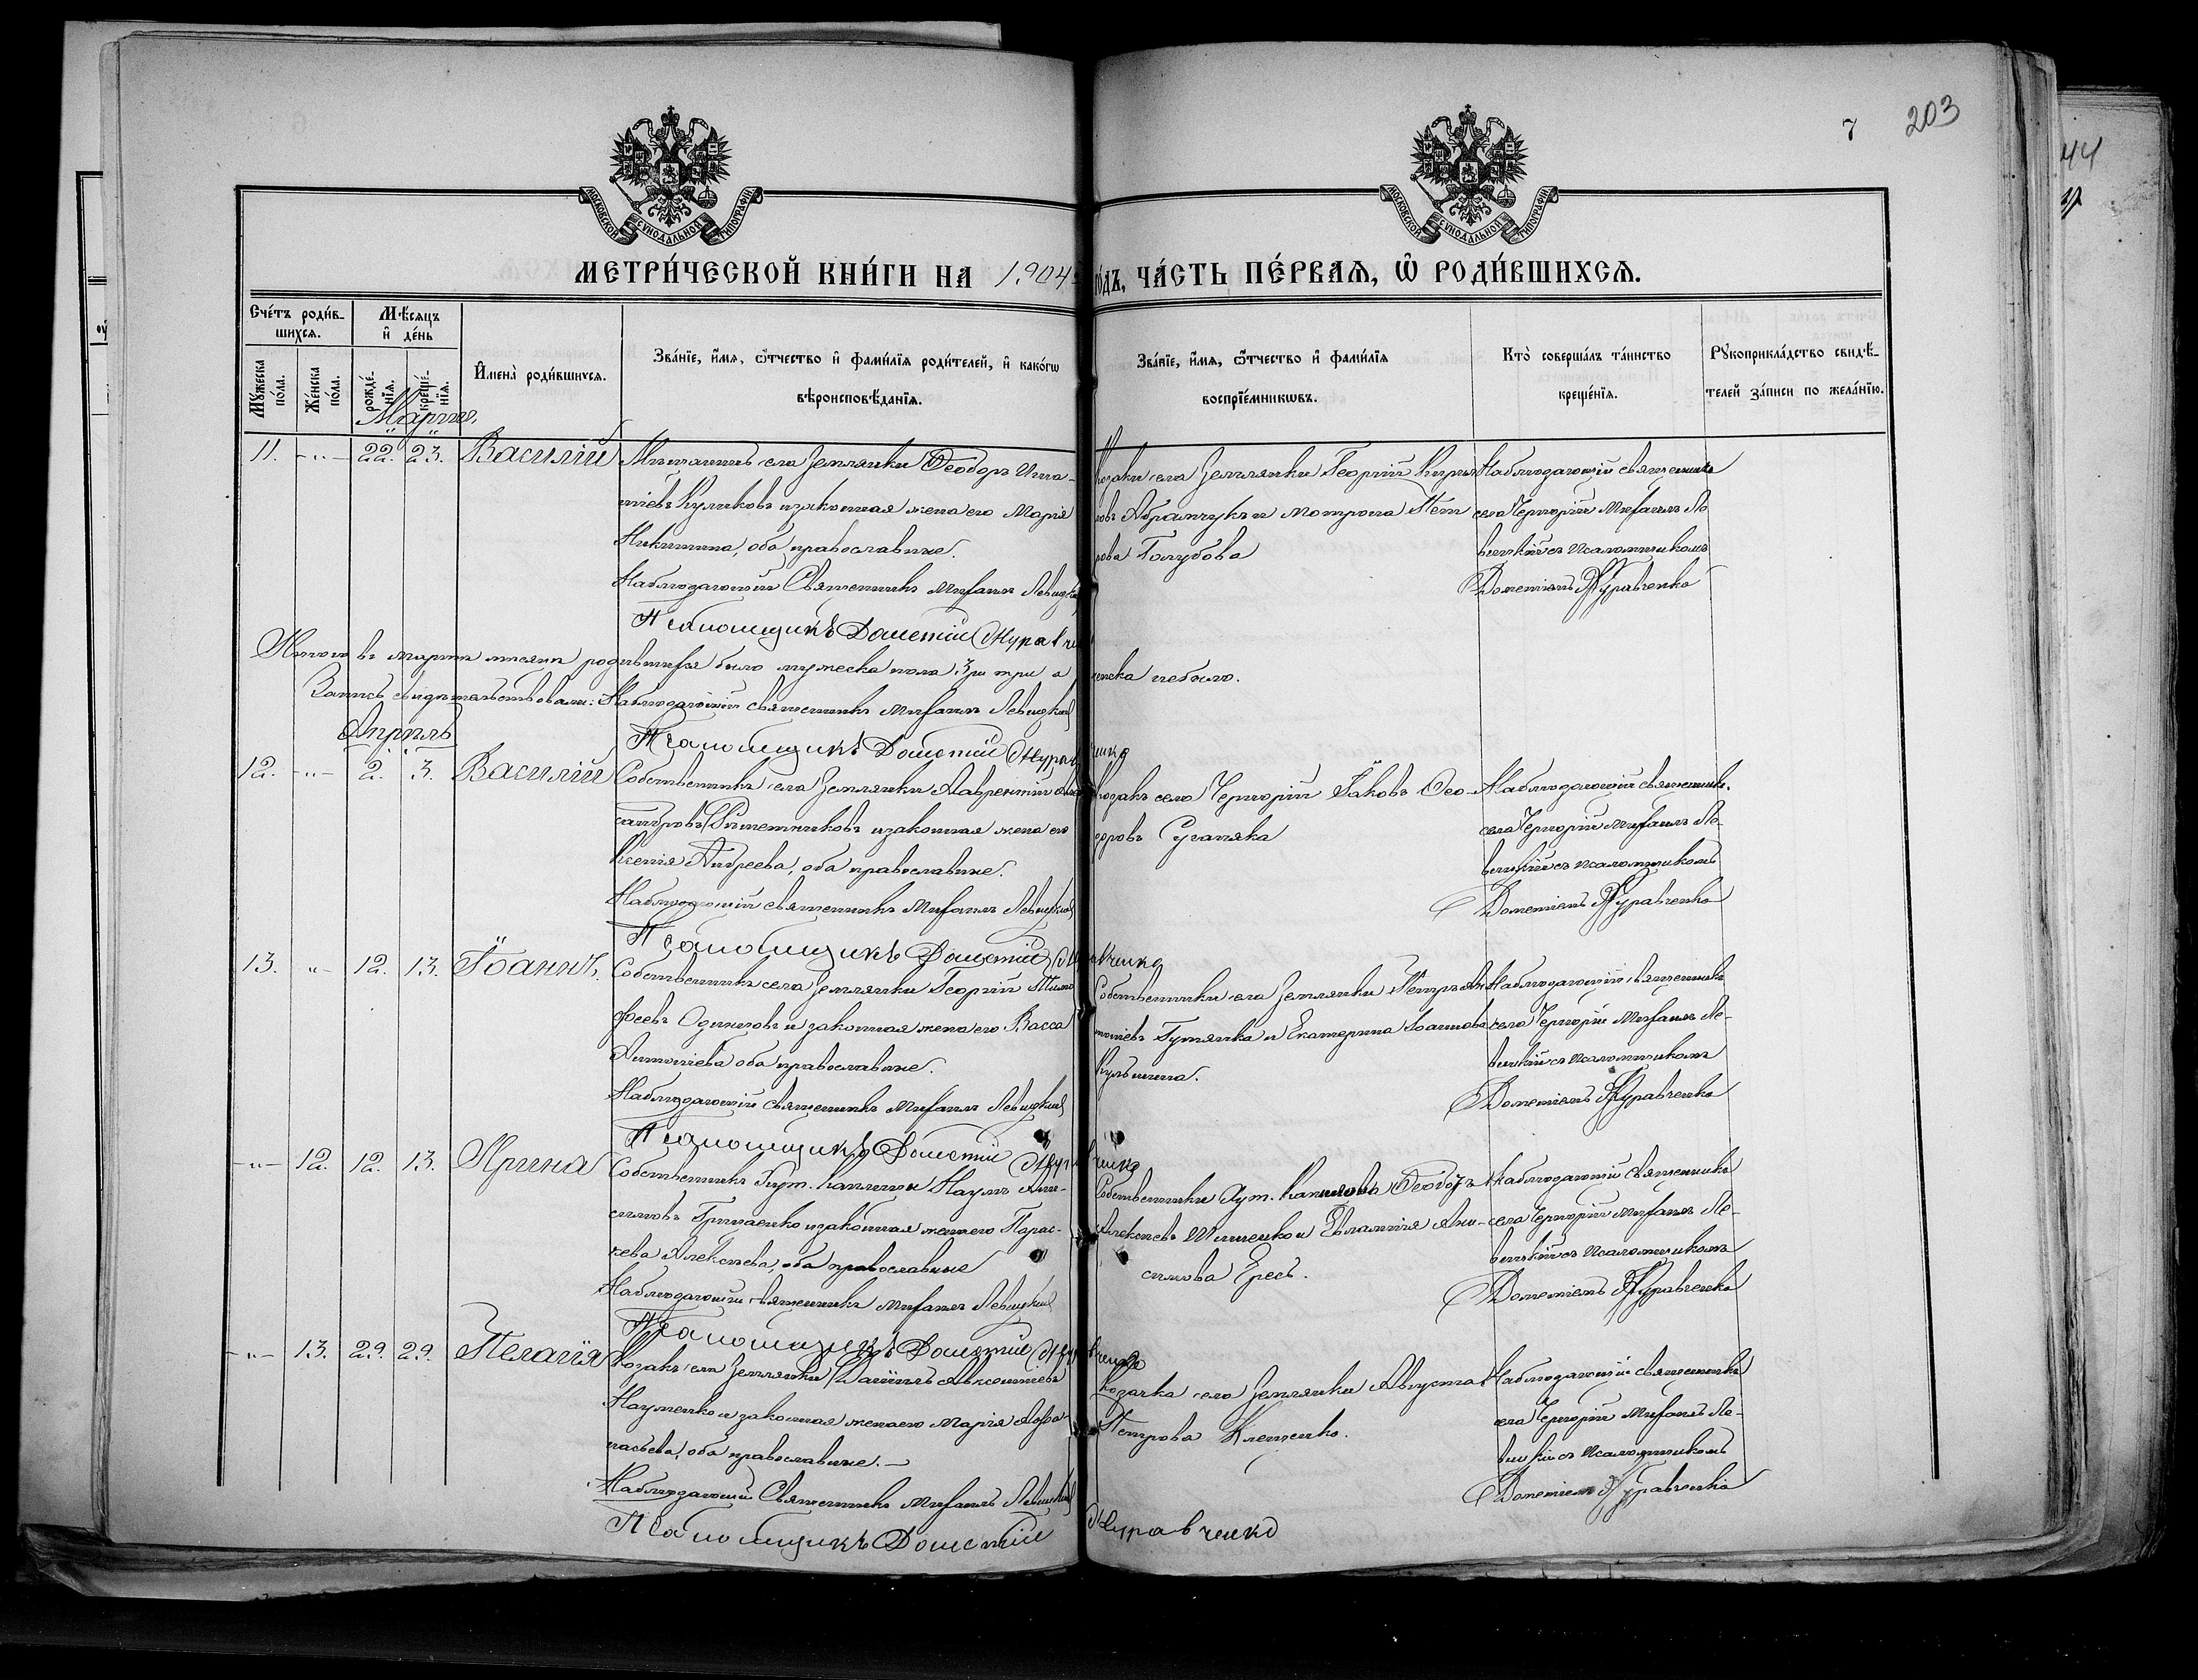 7 203
44
МОСКОВСКОЙ СѴНОДАЛЬНОЙ ТИПОГРАФІИ
МОСКОВСКОЙ СѴНОДАЛЬНОЙ ТИПОГРАФІИ
МЕТРИ́ЧЕСКОЙ КНИ́ГИ НА 1904 ГО́ДЪ, ЧА́СТЬ ПЕ́РВАѦ, Ѡ РОДИ́ВШИХСѦ.
Сче́тъ роди́в-
шихсѧ.
Мꙋ́жеска по́ла.
Же́нска по́ла.
Мѣ́сѧцъ
и де́нь
рожде́-
нїѧ.
креще́-
нїѧ.
И҆мена̀ роди́вшихсѧ.
Зва́нїе, и҆́мѧ, ѻ҆́тчество и҆ фами́лїѧ роди́телей, и҆ како́гѡ
вѣроисповѣ́данїѧ.
Зва́нїе, и҆́мѧ, ѻ҆́тчество и҆ фами́лїѧ
воспрїе́мникѡвъ.
Кто̀ соверша́лъ та́инство
креще́нїѧ.
Рꙋкоприкла́дство свидѣ́-
телей за́писи по жела́нїю.
Мартъ.
11. -„- 22. 23. Василій
Мѣщанинъ села Землянки Ѳеодоръ Игна-
тіевъ Куликовъ и законная жена его Марія
Никитина, оба православные.
Наблюдающій Священникъ Михаилъ Левицкій
Псаломщикъ Дометій Журавченко
Козаки села Землянки Георгій
Абрамчукъ и Мотрона Пет
рова Голубова
Наблюдающій священникъ
села Черногорій Михаилъ Ле
вицкій съ псаломщикомъ
Дометіемъ Журавченко
Итого въ мартѣ мѣсяцѣ родившихся было мужеска пола 3 три а женска небыло.
Запись свидѣтельствовали: Наблюдающій священникъ Михаилъ Левицкій
Псаломщикъ Дометій Журавченко
Апрѣль
12. -„- 2. 3. Василій
Собственникъ села Землянки Лаврентій Алек
сандровъ Рѣшетниковъ и законная жена его
Ксенія Андреева, оба православные.
Наблюдающій священникъ Михаилъ Левицкій
Псаломщикъ Дометій Журавченко
Козакъ села Черногорій Іаковъ Ѳео-
доровъ Суганяка
Наблюдающій священникъ
села Черногорій Михаилъ Ле-
вицкій съ псаломщикомъ
Дометіемъ Журавченко
13. „- 12. 13. Іоаннъ.
Собственникъ села Землянки Георгій Тимо
феевъ Одинцовъ и законная жена его Васса
Антоніева оба православные.
Наблюдающій священникъ Михаилъ Левицкій
Псаломщикъ Дометій Журавченко
Собственники села Землянки Петръ Ан
тоніевъ Гутянка и Екатерина Іоаннова
Кузьмина.
Наблюдающій священникъ
села Черногорій Михаилъ Ле-
вицкій съ псаломщикомъ
Дометіемъ Журавченко
-„- 12. 12. 13. Ирина
Собственникъ Хут. Каплины Наумъ Ани-
симовъ Гришаенко и законная жена его Парас-
кева Алексѣева, оба православные
Наблюдающій священникъ Михаилъ Левицкій
Псаломщикъ Дометій Журавченко
Собственники Хут. Ѳеодоръ
Алексѣевъ Шишенко и Евлампія Ани-
симова Ересь.
Наблюдающій священникъ
села Черногорій Михаилъ Ле-
вицкій съ псаломщикомъ
Дометіемъ Журавченко
-„- 13. 29. 29. Пелагія
Козакъ села Землянки Даніилъ Авксентіевъ
Науменко и законная жена его Марія Афа-
насьева, оба православные.
Наблюдающій Священникъ Михаилъ Левицкій
Псаломщикъ Дометій Журавченко
Козачка села Землянки Августа
Петрова Клещенко.
Наблюдающій священникъ
села Черногорій Михаилъ Ле-
вицкій съ псаломщикомъ
Дометіемъ Журавченко